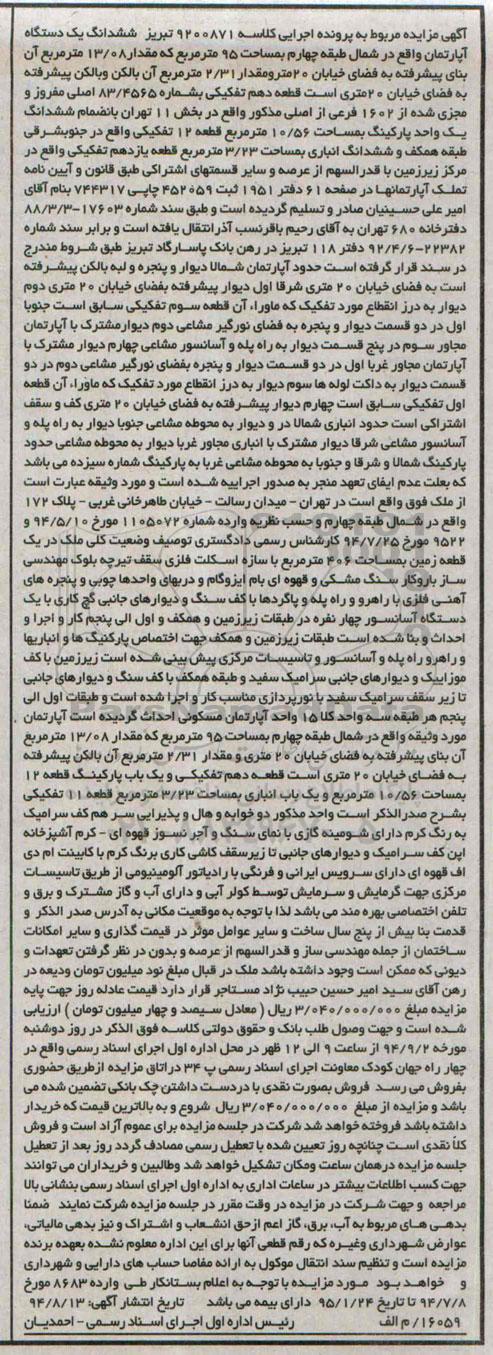 آگهی مزایده مربوط به پرونده اجرایی کلاسه ۹۲۰۰۸۷۱ تبریز ششدانگ یک دستگاه
آپارتمان واقع در شمال طبقه چهارم بمساحت ۹۵ مترمربع که مقدار ۱۳/۰۸ مترمربع آن
بنای پیشرفته به فضای خیابان ۲۰مترو مقدار ۲/۳۱ مترمربع آن بالکن وبالکن پیشرفته
به فضای خیابان ۲۰متری است قطعه دهم تفکیکی بشماره ۸۳/۴۵۶۵ اصلی مفروز و
مجزی شده از ۱۶۰۲ فرعی از اصلی مذکور واقع در بخش ۱۱ تهران بانضمام ششدانگ
یک واحد پارکینگ بمساحت ۱۰/۵۶ مترمربع قطعه ۱۲ تفکیکی واقع در جنوبشرقی
طبقه همکف و ششدانگ انباری بمساحت ۳/۲۳ مترمربع قطعه یازدهم تفکیکی واقع در
مرکز زیرزمین با قدرالسهم از عرصه و سایر قسمتهای اشتراکی طبق قانون و آیین نامه
تملک آپارتمانها در صفحه ۶۱ دفتر ۱۹۵۱ ثبت ۴۵۲۰۵۹ چاپی ۷۴۴۳۱۷ بنام آقای
امیر علی حسینیان صادر و تسلیم گردیده است و طبق سند شماره ۱۷۶۰۳-۸۸/۳/۳
دفترخانه ۶۸۰ تهران به آقای رحیم باقرنسب آذرانتقال یافته است و برابر سند شماره
۲۲۳۸۲-۹۲/۴/۶ دفتر ۱۱۸ تبریز در رهن بانک پاسارگاد تبریز طبق شروط مندرج
در سند قرار گرفته است حدود آپارتمان شمالا دیوار و پنجره و لبه بالکن پیشرفته
است به فضای خیابان ۲۰ متری شرقا اول دیوار پیشرفته بفضای خیابان ۲۰ متری دوم
دیوار به درز انقطاع مورد تفکیک که ماوراء آن قطعه سوم تفکیکی سابق است جنوبا
اول در دو قسمت دیوار و پنجره به فضای نورگیر مشاعی دوم دیوارمشترک با آپارتمان
مجاور سوم در پنج قسمت دیوار به راه پله و آسانسور مشاعی چهارم دیوار مشترک با
آپارتمان مجاور غربا اول در دو قسمت دیوار و پنجره بفضای نورگیر مشاعی دوم در دو
قسمت دیوار به داکت لوله ها سوم دیوار به درز انقطاع مورد تفکیک که ماوراء آن قطعه
اول تفکیکی سابق است چهارم دیوار پیشرفته به فضای خیابان ۲۰ متری کف و سقف
اشتراکی است حدود انباری شمالا در و دیوار به محوطه مشاعی جنوبا دیوار به راه پله و
آسانسور مشاعی شرقا دیوار مشترک با انباری مجاور غربا دیوار به محوطه مشاعی حدود
پارکینگ شمالا و شرقا و جنوبا به محوطه مشاعی غربا به پارکینگ شماره سیزده می باشد
که بعلت عدم ایفای تعهد منجر به صدور اجراییه شده است و مورد وثیقه عبارت است
از ملک فوق واقع است در تهران - میدان رسالت - خیابان طاهرخانی غربی - پلاک ۱۷۲
واقع در شمال طبقه چهارم و حسب نظریه وارده شماره ۱۱۰۵۰۷۲ مورخ ۹۴/۵/۱۰ و
۹۵۲۲ مورخ ۹۴/۷/۲۵ کارشناس رسمی دادگستری توصیف وضعیت کلی ملک در یک
قطعه زمین بمساحت ۴۰۶ مترمربع با سازه اسکلت فلزی سقف تیرچه بلوک مهندسی
ساز باروکار سنگ مشکی و قهوه ای بام ایزوگام و دربهای واحدها چوبی و پنجره های
آهنی فلزی با راهرو و راه پله و پاگردها با کف سنگ و دیوارهای جانبی گچ کاری با یک
دستگاه آسانسور چهار نفره در طبقات زیرزمین و همکف و اول الی پنجم کار و اجرا و
احداث و بنا شده است طبقات زیرزمین و همکف جهت اختصاص پارکنیگ ها و انباریها
و راهرو راه پله و آسانسور و تاسیسات مرکزی پیش بینی شده است زیرزمین با کف
موزاییک و دیوارهای جانبی سرامیک سفید و طبقه همکف با کف سنگ و دیوارهای جانبی
تا زیر سقف سرامیک سفید با نورپردازی مناسب کار و اجرا شده است و طبقات اول الی
پنجم هر طبقه سه واحد کلا ۱۵ واحد آپارتمان مسکونی احداث گردیده است آپارتمان
مورد وثیقه واقع در شمال طبقه چهارم بمساحت ۹۵ مترمربع که مقدار ۱۳/۰۸ مترمربع
آن بنای پیشرفته به فضای خیابان ۲۰ متری و مقدار ۲/۳۱ مترمربع آن بالکن پیشرفته
به فضای خیابان ۲۰ متری است قطعه دهم تفکیکی و یک باب پارکینگ قطعه ۱۲
بمساحت ۱۰/۵۶ مترمربع و یک باب انباری بمساحت ۳/۲۳ مترمربع قطعه ۱۱ تفکیکی
بشرح صدرالذکر است واحد مذکور دو خوابه و هال و پذیرایی سر هم کف سرامیک
به رنگ کرم دارای شومینه گازی با نمای سنگ و آجر نسوز قهوه ای - کرم آشپزخانه
اپن کف سرامیک و دیوارهای جانبی تا زیرسقف کاشی کاری برنگ کرم با کابینت ام دی
اف قهوه ای دارای سرویس ایرانی و فرنگی با رادیاتور آلومینیومی از طریق تاسیسات
مرکزی جهت گرمایش و سرمایش توسط کولر آبی و دارای آب و گاز مشترک و برق و
تلفن اختصاصی بهره مند می باشد لذا با توجه به موقعیت مکانی به آدرس صدر الذکر و
قدمت بنا بیش از پنج سال ساخت و سایر عوامل موثر در قیمت گذاری و سایر امکانات
ساختمان از جمله مهندسی ساز و قدرالسهم از عرصه و بدون در نظر گرفتن تعهدات و
دیونی که ممکن است وجود داشته باشد ملک در قبال مبلغ نود میلیون تومان ودیعه در
رهن آقای سید امیر حسین حبیب نژاد مستاجر قرار دارد قیمت عادله روز جهت پایه
مزایده مبلغ ۳/۰۴۰/۰۰۰/۰۰۰ ریال ( معادل سیصد و چهار میلیون تومان ) ارزیابی
شده است و جهت وصول طلب بانک و حقوق دولتی کلاسه فوق الذکر در روز دوشنبه
مورخه ۹۴/۹/۲ از ساعت ۹ الی ۱۲ ظهر در محل اداره اول اجرای اسناد رسمی واقع در
چهار راه جهان کودک معاونت اجرای اسناد رسمی پ ۳۴ دراتاق مزایده ازطریق حضوری
بفروش می رسد فروش بصورت نقدی با دردست داشتن چک بانکی تضمین شده می
باشد و مزایده از مبلغ ۳/۰۴۰/۰۰۰/۰۰۰ ریال شروع و به بالاترین قیمت که خریدار
داشته باشد فروخته خواهد شد شرکت در جلسه مزایده برای عموم آزاد است و فروش
کلاً نقدی است چنانچه روز تعیین شده با تعطیل رسمی مصادف گردد روز بعد از تعطیل
جلسه مزایده درهمان ساعت ومکان تشکیل خواهد شد وطالبین و خریداران می توانند
جهت کسب اطلاعات بیشتر در ساعات اداری به اداره اول اجرای اسناد رسمی بنشانی بالا
مراجعه و جهت شرکت در مزایده در وقت مقرر در جلسه مزایده شرکت نمایند ضمنا
بدهی های مربوط به آب، برق، گاز اعم ازحق انشعاب و اشتراک و نیز بدهی مالیاتی،
عوارض شهرداری وغیره که رقم قطعی آنها برای این اداره معلوم نشده بعهده برنده
مزایده است و تنظیم سند انتقال موکول به ارائه مفاصا حساب های دارایی و شهرداری
و خواهد بود مورد مزایده با توجه به اعلام بستانکار طی وارده ۸۶۸۳ مورخ
۹۴/۷/۸ تا تاریخ ۹۵/۱/۲۴ دارای بیمه می باشد تاریخ انتشار آگهی: ۹۴/۸/۱۳
۱۶۰۵۹/ م الف رئیس اداره اول اجرای اسناد رسمی - احمدیان